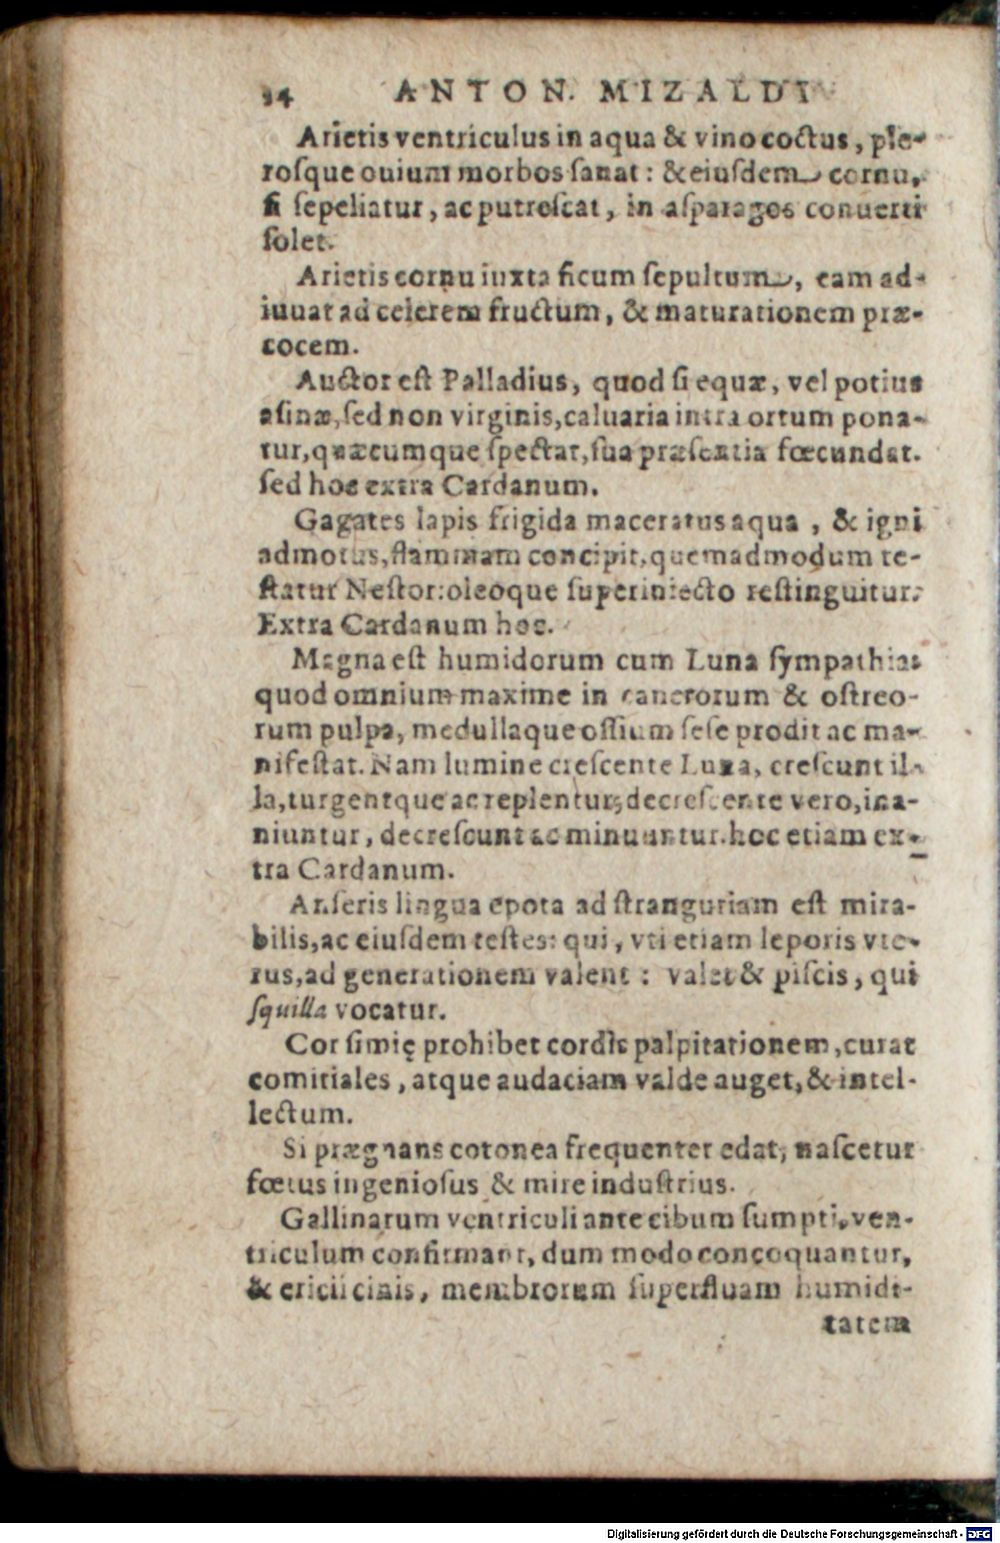 34 ANTON. MIZALDI
Arietis ventriculus in aqua & vino coctus, ple-
roſque ouium morbos ſanat: & eiuſdem cornu,
ſi ſepeliatur, ac putreſcat, in aſparagos conuerti
ſolet.
Arietis cornu iuxta ficum ſepultum, eam ad-
iuuat ad celerem fructum, & maturationem præ-
cocem.
Auctor eſt Palladius, quod ſi equæ, vel potius
aſinæ, ſed non virginis, caluaria intra ortum pona-
tur, quæcumque ſpectat, ſua præſentia fœcundat.
ſed hoc extra Cardanum.
Gagates lapis frigida maceratus aqua, & igni
admotus, flammam concipit, quemadmodum te-
ſtatur Neſtor: oleoque ſuperiniecto reſtinguitur.
Extra Cardanum hoc.
Magna eſt humidorum cum Luna ſympathia:
quod omnium maxime in cancrorum & oſtreo-
rum pulpa, medullaque oſſium ſeſe prodit ac ma-
nifeſtat. Nam lumine creſcente Luna, creſcunt il-
la, turgentque ac replentur; decreſcente vero, ina-
niuntur, decreſcunt ac minuuntur. hoc etiam ex-
tra Cardanum.
Anſeris lingua epota ad ſtranguriam eſt mira-
bilis, ac eiuſdem teſtes: qui, vti etiam leporis vte-
rus, ad generationem valent: valet & piſcis, qui
ſquilla vocatur.
Cor ſimię prohibet cordis palpitationem, curat
comitiales, atque audaciam valde auget, & intel-
lectum.
Si prægnans cotonea frequenter edat, naſcetur
fœtus ingenioſus & mire induſtrius.
Gallinarum ventriculi ante cibum ſumpti, ven-
triculum confirmant, dum modo concoquantur,
& ericii cinis, membrorum ſuperfluam humidi-
tatem
Digitalisierung gefördert durch die Deutsche Forschungsgemeinschaft - DFG